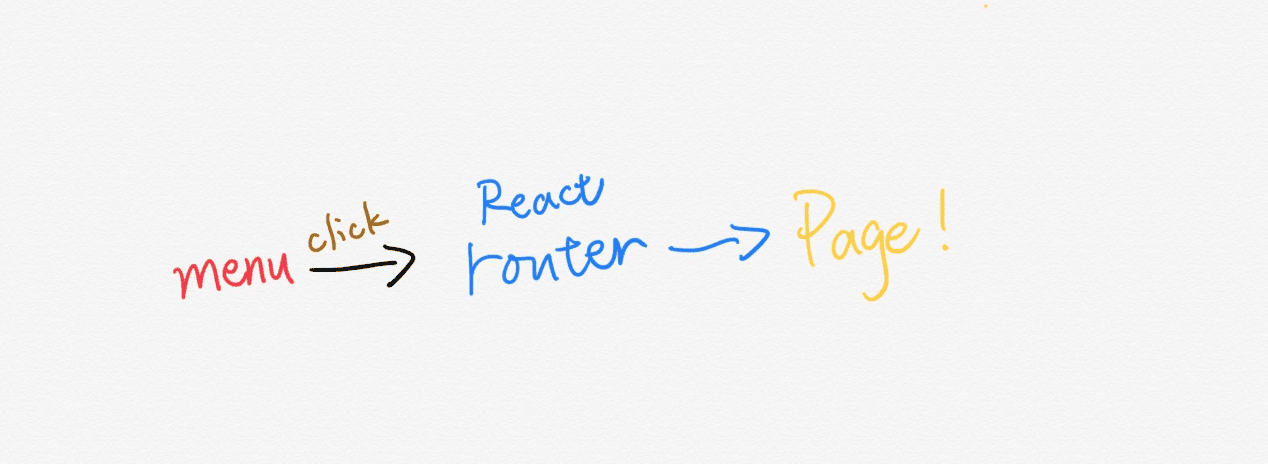 menu
click
React
router
Page!